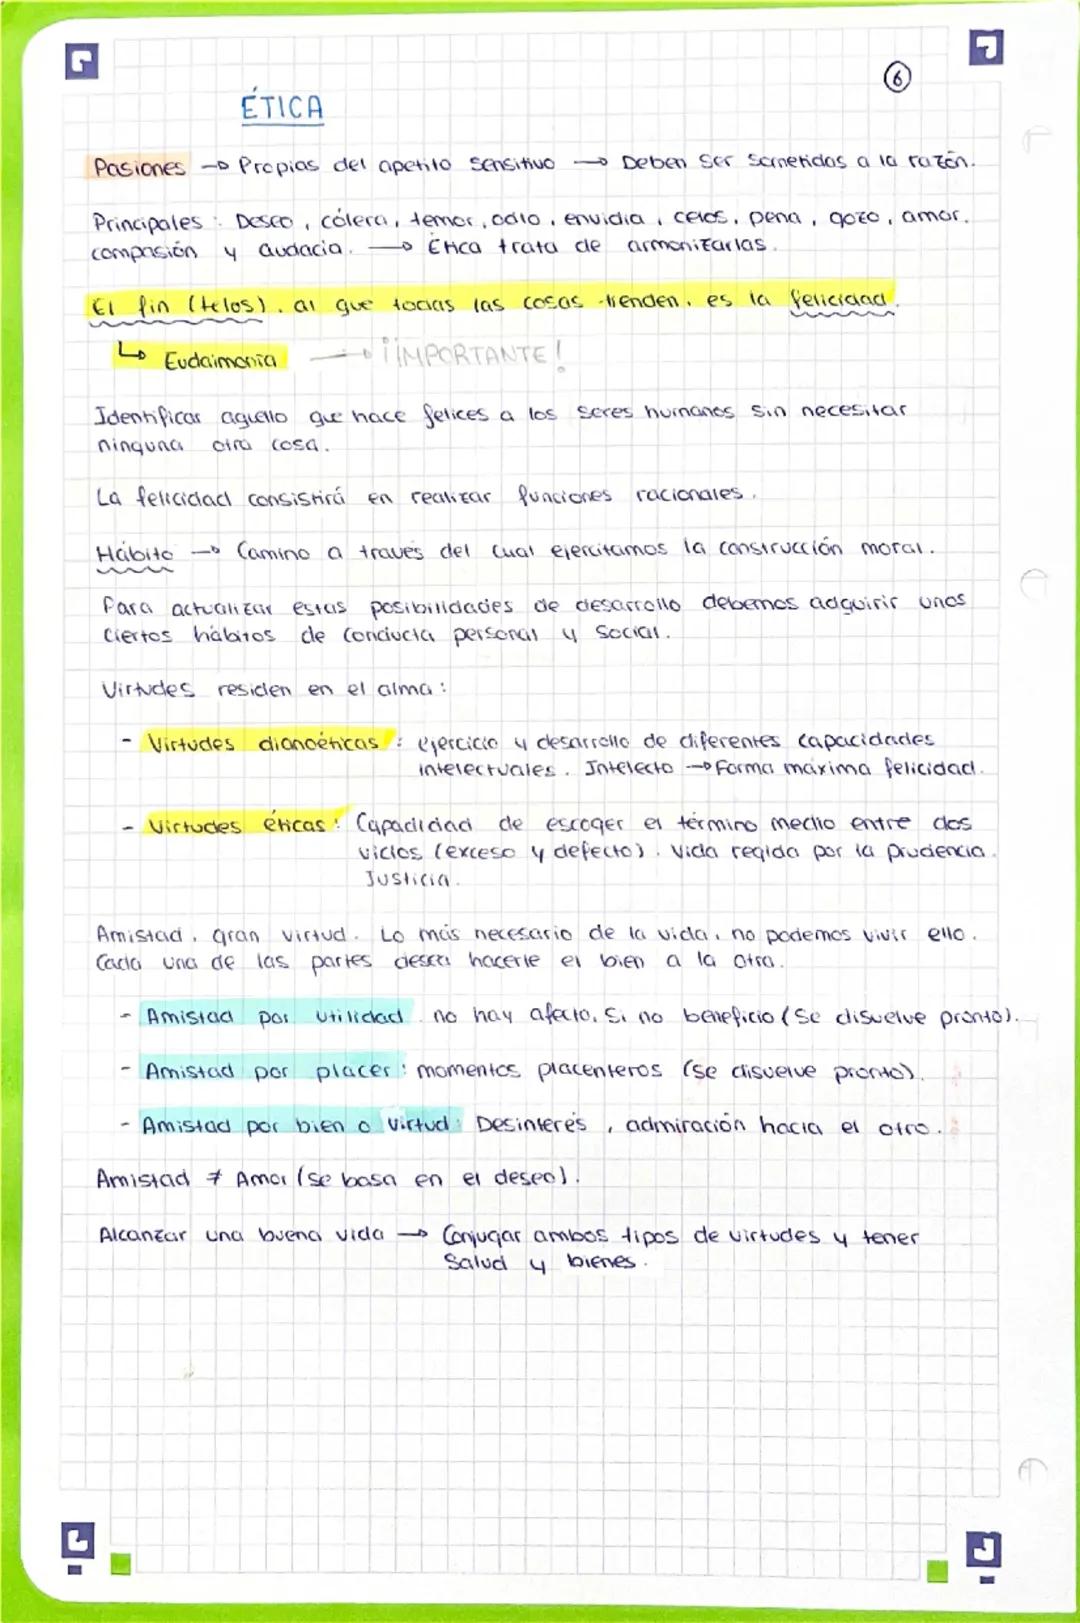 6
ÉTICA
Pasiones → Propias del apetito sensitivo → Deben ser sometidas a la razón.
Principales: Deseo, cólera, temor, odio, envidia, celos, pena, gozo, amor,
compasión y audacia. → Ética trata de armonizarlas.
El fin (telos), al que todas las cosas tienden, es la felicidad.
↳ Eudaimonia → ¡IMPORTANTE!
Identificar aquello que hace felices a los seres humanos sin necesitar
ninguna otra cosa.
La felicidad consistirá en realizar funciones racionales.
Hábito → Camino a través del cual ejercitamos la construcción moral.
Para actualizar estas posibilidades de desarrollo debemos adquirir unos
ciertos hábitos de conducta personal y social.
Virtudes residen en el alma:
- Virtudes dianoéticas: ejercicio y desarrollo de diferentes capacidades
intelectuales. Intelecto → Forma máxima felicidad.
- Virtudes éticas: Capacidad de escoger el término medio entre dos
vicios (exceso y defecto). Vida regida por la prudencia.
Justicia.
Amistad, gran virtud. Lo más necesario de la vida, no podemos vivir ello.
Cada una de las partes desea hacerle el bien a la otra.
- Amistad por utilidad no hay afecto, si no beneficio (se disuelve pronto).
- Amistad por placer: momentos placenteros (se disuelve pronto).
- Amistad por bien o virtud: Desinterés, admiración hacia el otro.
Amistad ≠ Amor (se basa en el deseo).
Alcanzar una buena vida → Conjugar ambos tipos de virtudes y tener
salud y bienes.